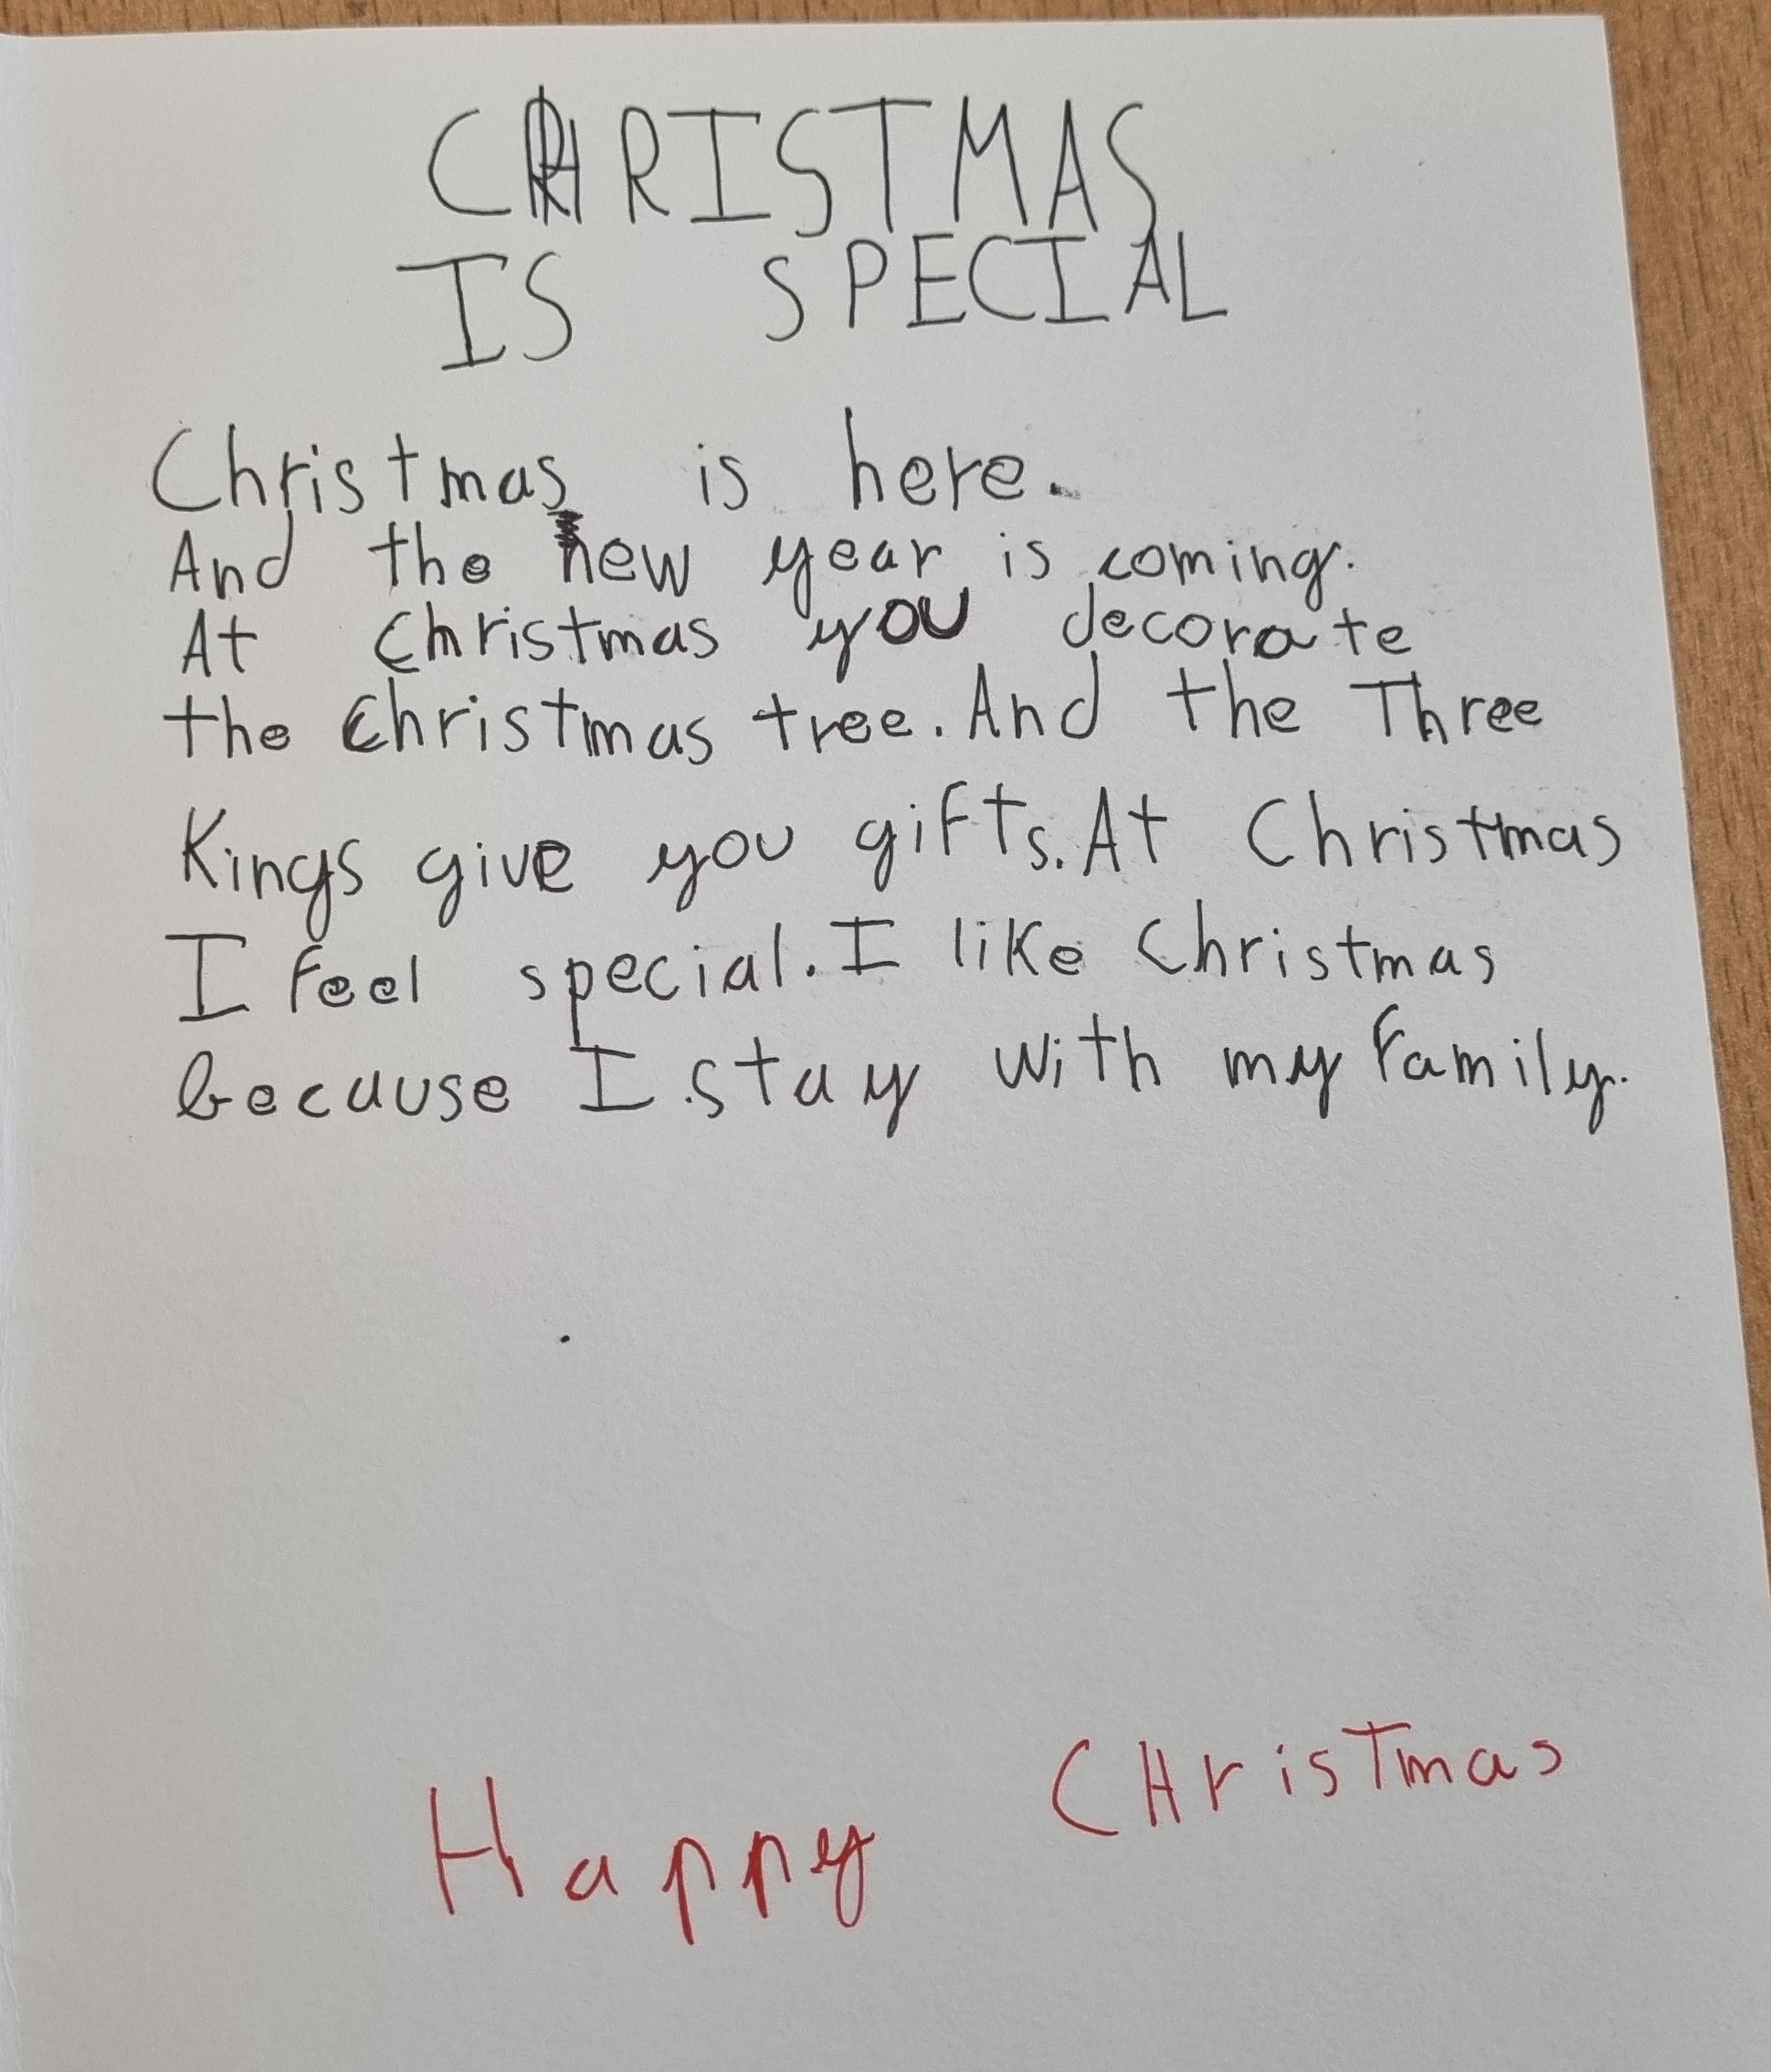 CHRISTMAS
IS SPECIAL
Christmas is here.
And the new year is coming.
At Christmas you decorate
the Christmas tree. And the Three
Kings give you gifts. At Christmas
I feel special. I like Christmas
because I stay with my family.
Happy CHrisTmas